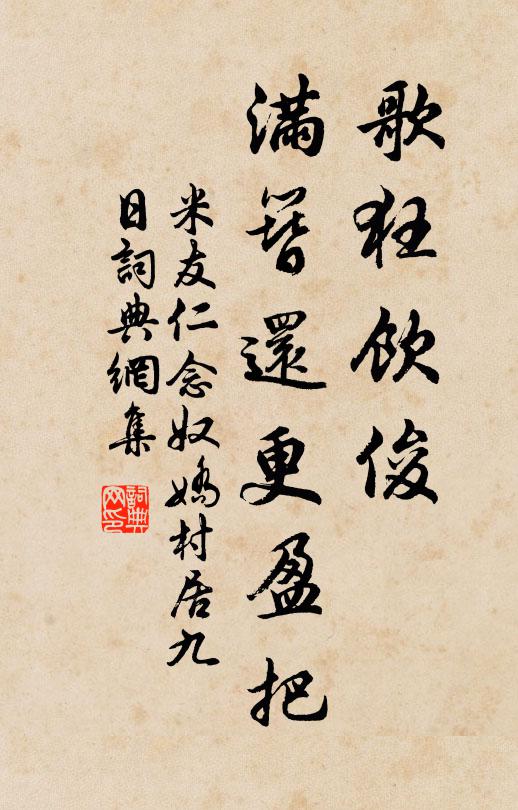 歌狂飲俊
滿簪還更盈把
米友仁念奴嬌村居九
日詞典網集
詞典网印